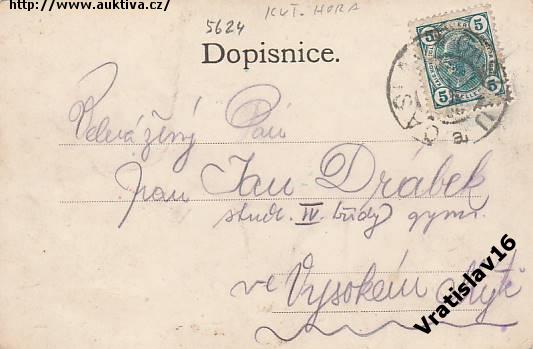 http://www.auktiva.cz/
5624
KUT. HORA
Dopisnice.
5 5
5 5
HELLER
ČÁSLAV
Velevážený Pán
pan Jan Drábek
stud. IV. třídy gymn.
ve Vysokém Mýtě
Vratislav16